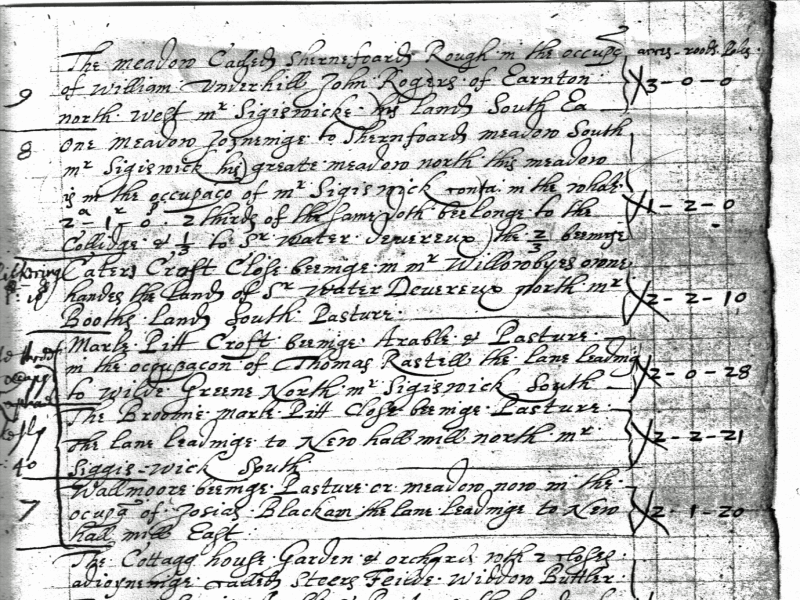 The meadow Called Shernefoard Rough in the occupa acres - roods. Poles.
of William Underhill John Rogers of Earnton 3 - 0 - 0
9
north. West mr Sigiswicke. his land South Ea
8 One meadow Joyneinge to Shernfoard meadow South
mr Sigiswick his greate meadow north this meadow
is in the occupaco of mr Sigiswick conta. in the whole. 1 - 2 - 0
2a - 1r - 0p 2 thirds of the same doth beelonge to the
Collidge & 1/3 to Sr Water Devereux) the 2/3 beeinge
Caters Croft Close beeinge in mr Willowbyes owne
handes the Land of Sr Water Devereux north mr 2 - 2 - 10
Booths Land South Pasture.
Marle Pitt Croft beeinge Arable & Pasture
in the occupacon of Thomas Rastell the lane leading 2 - 0 - 28
to Wilde Greene North mr Sigiswick South
The Broome marle Pitt Close beeinge Pasture
the lane leadinge to New hall mill north mr 2 - 2 - 21
Siggis-wick South
40
Wallmoore beeinge Pasture or meadow now in the
7 occupa of Josias Blackam the lane leadinge to New 2 - 1 - 20
hall mill East
The Cottage house Garden & orchard wth 2 closes
adioyneinge called Steers Feilde Widdow Buttler